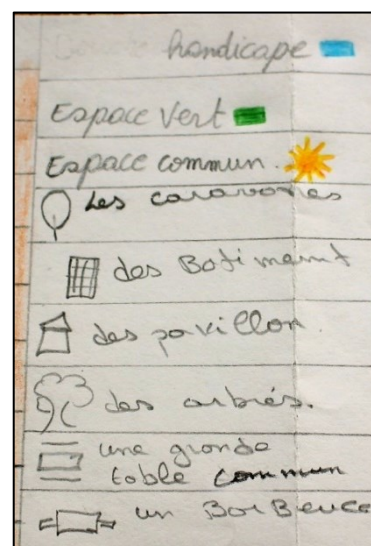 handicape
Espace Vert
Espace commun.
Les caravanes
des Batiment
des pavillon.
des arbres.
une grande
table commun
un BarBeuce